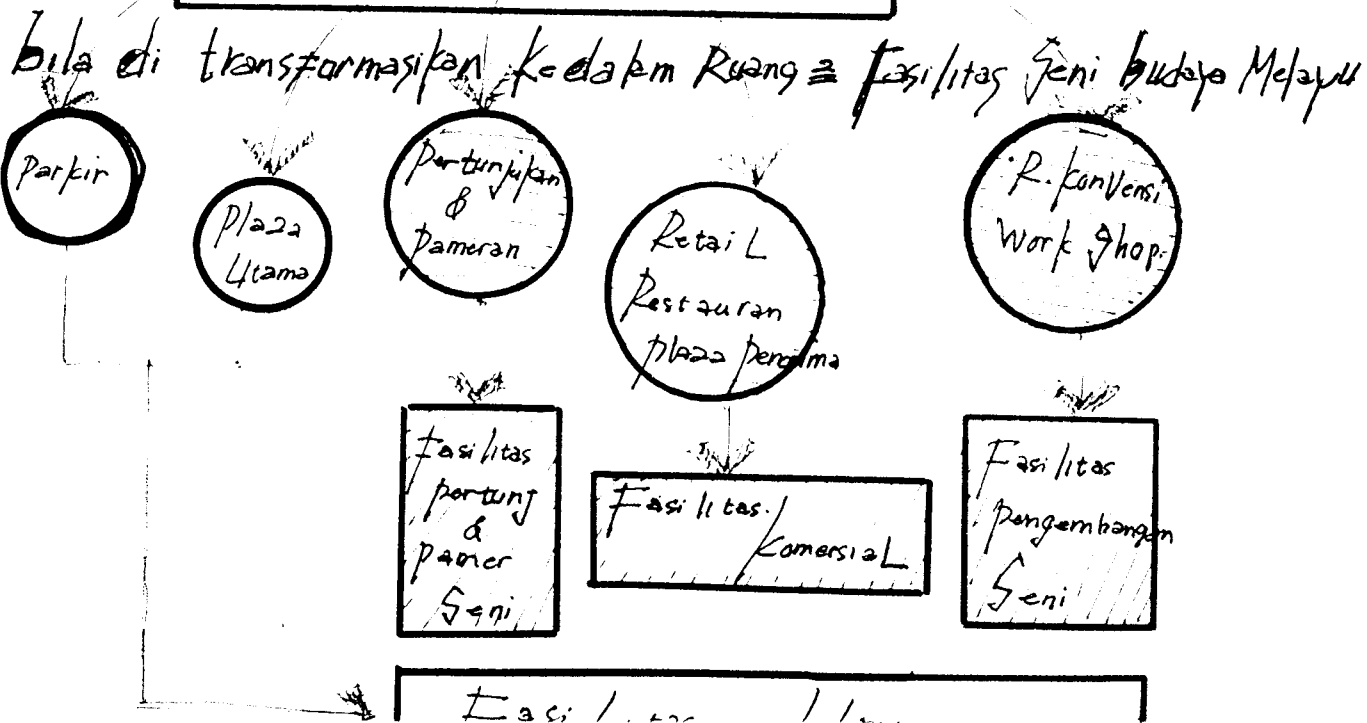 bila di transformasikan kedalam Ruang = Fasilitas Seni budaya Melayu
Parkir
Plaza
Utama
Pertunjukan
&
Pameran
Retail
Restauran
Plaza penerima
R. Konvensi
Work Shop.
Fasilitas
pertunj
&
pamer
Seni
Fasilitas
Komersial
Fasilitas
pengembangan
Seni
Fasilitas